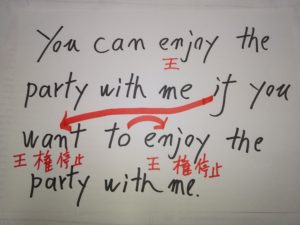 You can enjoy the
王
party with me if you
want to enjoy the
王 権停止 王 権停止
party with me.